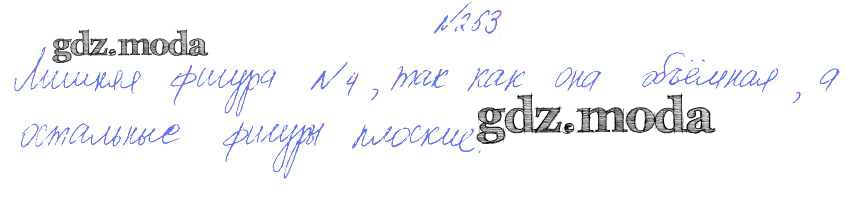 №253
gdz.moda
Лишняя фигура №4, так как она объёмная, а
остальные фигуры плоские.
gdz.moda